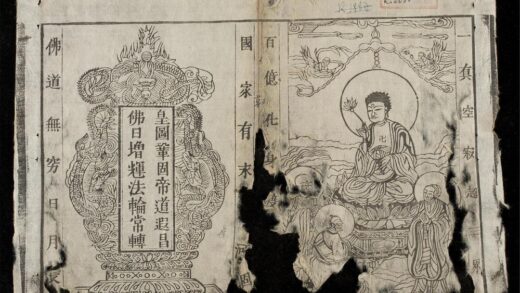 一真空寂
界
百億化身
國家有末
皇圖鞏固帝道遐昌
佛日增輝法輪常轉
佛道無穷日月